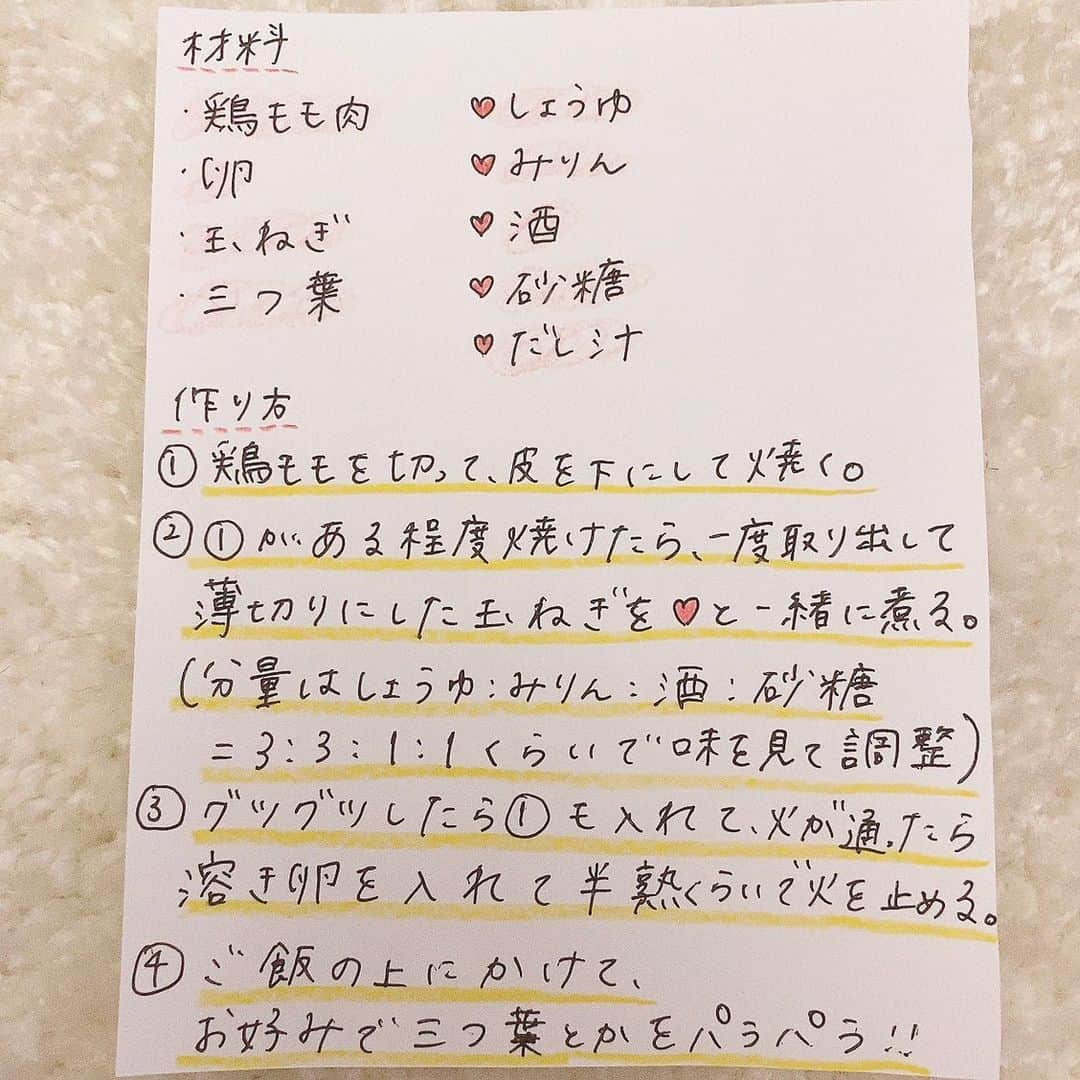 材料
・鶏もも肉
・卵
・玉ねぎ
・三つ葉
♥しょうゆ
♥みりん
♥酒
♥砂糖
♥だし汁
作り方
①鶏ももを切って、皮を下にして焼く。
②①がある程度焼けたら、一度取り出して
薄切りにした玉ねぎを♥と一緒に煮る。
(分量はしょうゆ:みりん:酒:砂糖
=3:3:1:1くらいで味を見て調整)
③グツグツしたら①も入れて、火が通ったら
溶き卵を入れて半熟くらいで火を止める。
④ご飯の上にかけて、
お好みで三つ葉とかをパラパラ!!